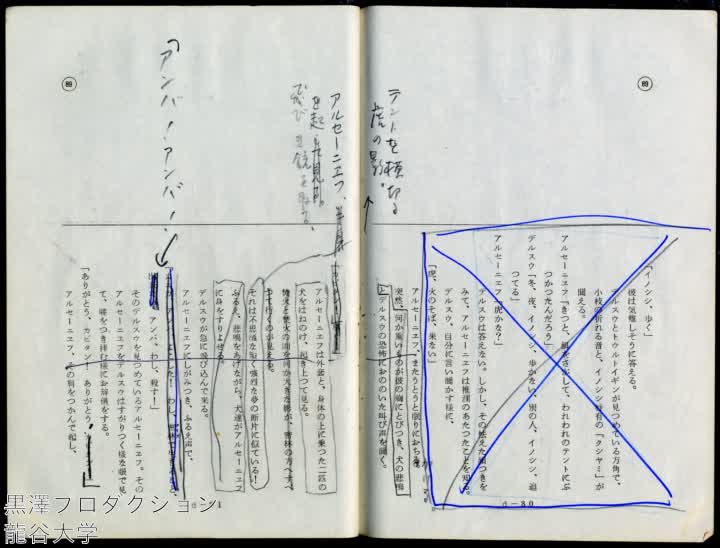 「イノシシ、歩く」
彼は気難しそうに答える。
デルスウとトウルトイギンが見つめている方角で、
小枝の折れる音と、イノシシ特有の「クシヤミ」が
聞える。
アルセーニエフ「きつと、餌をさがして、われわれのテントにぶ
つかつたんだろう」
デルスウ「冬、夜、イノシシ、歩かない、別の人、イノシシ、追
つてる」
アルセーニエフ「虎かな?」
デルスウは答えない。しかし、その怯えた顔つきを
みて、アルセーニエフは推測のあたつたことを知る。
デルスウ、自分に言い聞かす様に、
「虎、火のそば、来ない」
アルセーニエフ、またうとうと眠りにおちる
突然、何か重いものが彼の胸にとびつき、犬の悲鳴
とデルスウの恐怖におののいた叫び声を聞く。
d-80
テントを横切る
虎の影。
アルセーニエフ、半身
を起して見る。
アルセーニエフは外套と、身体の上に乗つた二匹の
犬をはねのけ、起き上つて見る。
樹々と焚火の間を何か大きな影が、密林の方へすべ
つて行くのが見える。
それは不思議な短い強烈な夢の断片に似ている!
ふるえ、悲鳴をあげながら、犬達がアルセーニエフ
に身をすりよせる。
デルスウが急に飛び込んで来る。
アルセーニエフにしがみつき、ふるえ声で、
「アンバ!アンバ!
アンバ、わし、殺す!」
そのデルスウを見つめているアルセーニエフ。その
アルセーニエフをデルスウはすがりつく様な眼で見
て、額をつき挿む様にお辞儀をする。
「ありがとう、カピタン! ありがとう
アルセーニエフ、その肩をつかんで起し、
89
89
黒澤プロダクション
龍谷大学